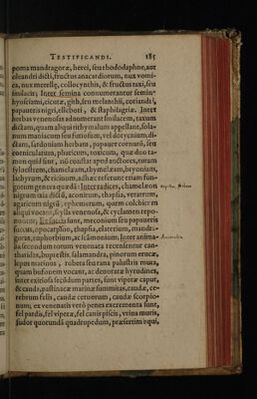 TESTIFICANDI. 185
poma mandragoræ, herei, seu rhododaphne, aut
oleandri dicti, fructus anacardiorum, nux vomi-
ca, nux metelle, collocynthis, & fructus taxi, seu
smilacis; Inter semina connumerantur semina
hyoscyami, cicutæ, gith, seu melanthii, coriandri,
papaueris nigri, & staphisagriæ. Inter
herbas venenosas adnumerant smilacem, taxum
dictam, quam aliqui tithymalum appellant, sola-
num maniacum seu furiosum, vel dorycnium, di-
ctam, sardoniam herbam, papauer cornutũ, seu
corniculatum, pharicum, toxicum, quæ duo ta-
men quid sint, nõ constat apud auctores,
gorum genera quædã: Inter radices, chamæleon
nigrum ixia dictũ, aconitum, thapsia, veratrum,
agaricum nigrũ, ephemerum, quam colchicum
aliqui vocant, scylla venenosa, & cyclamen repo-
nuntur, Ex succis sunt, meconium seu papaueris
succus, opocarpason, thapsia, elaterium, mandra-
goræ, euphorbium, ac scãmonium. Inter anima-
lia secundum totum venenata recensentur can-
tharides, buprestis, salamandra, pinorum erucæ,
lepus marinus, rubeta seu rana palustris muta,
quam bufonem vocant, ac denotatæ hyrudines,
inter exteriora secũdum partes, sunt viperæ caput,
& cauda, pastinacæ marinæ summitas, caudæ, ce-
rebrum felis, caudæ ceruorum, caudæ scorpio-
num; ex venenatis verò penes excrementa sunt,
fel pardi, fel viperæ, fel canis piscis, vrina muris,
sudor quorundã quadrupedum, præsertim equi,